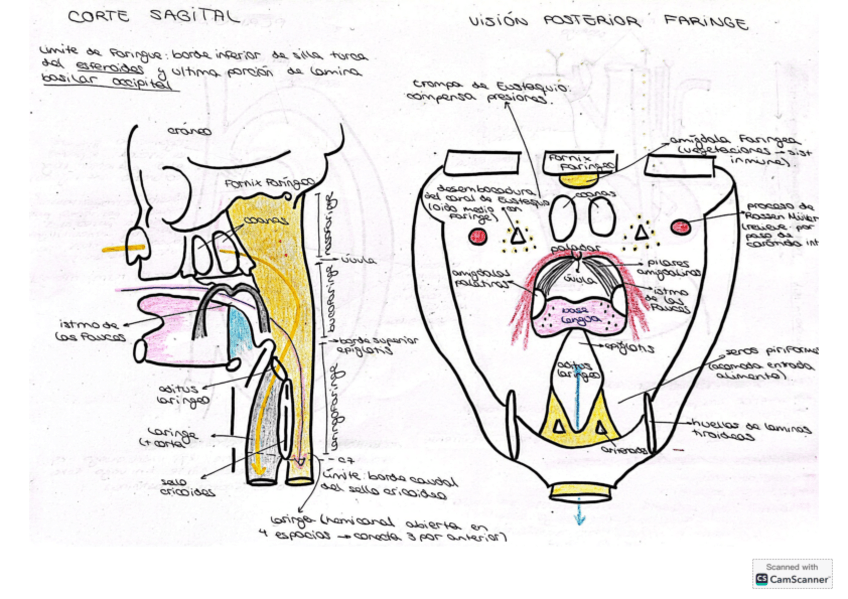 CORTE SAGITAL
VISIÓN POSTERIOR FARINGE
Límite de Faringe: borde inferior de silla turca
del esfenoides y ultima porción de lamina
basilar occipital
trompa de Eustaquio:
compensa presiones.
cráneo
amígdala Faringea
(vegetaciones → sist
inmune).
Fornix Faríngeo
Fornix
Faringeo
coanas
coanas
desembocadura
del canal de Eustaquio
(oido medio en
faringe)
proceso de
Rosen
paso de
carótida int
nasofaringe
úvula
paladar
pilares
amigdalinos
amígdalas
palatinas
úvula
istmo
de las
Fauces
base
lengua
bucofaringe
istmo de
las Fauces
borde superior
epiglotis
epiglotis
aditus
laríngeo
senos piriformes
(acomoda entrada
alimento).
aditus
laríngeo
laringofaringe
laringe
(+ corta)
huellas de laminas
tiroideas
C7
sello
cricoides
Límite: borde caudal
del sello cricoideo
Laringe (hemicanal abierta en
4 espacios → conecta 3 por anterior)
Scanned with
CS CamScanner